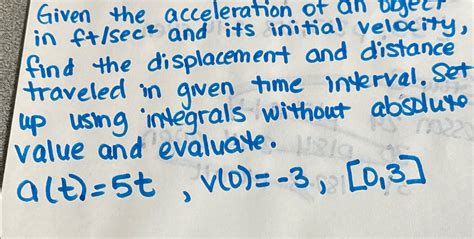 Given the acceleration of an object
in ft/sec² and its initial velocity,
find the displacement and distance
traveled in given time interval. Set
up using integrals without absolute
value and evaluate.
a(t)=5t, v(0)=-3, [0,3]